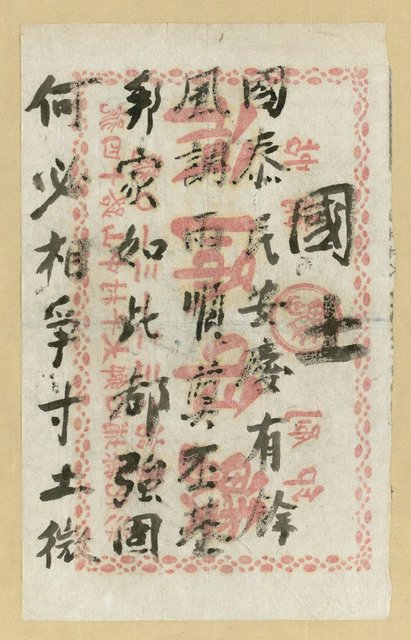 國土
國泰民安慶有餘
風調雨順奠丕基
邦家如此都強固
何必相爭寸土微